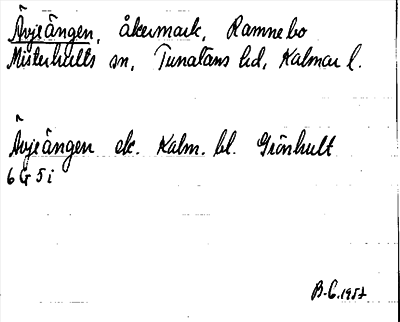 Ävjeängen, åkermark, Ramnebo
Misterhults sn, Tunaläns hd, Kalmar l.
Ävjeängen ek. Kalm. bl. Grönhult
6 G 5 i
B.G. 1957